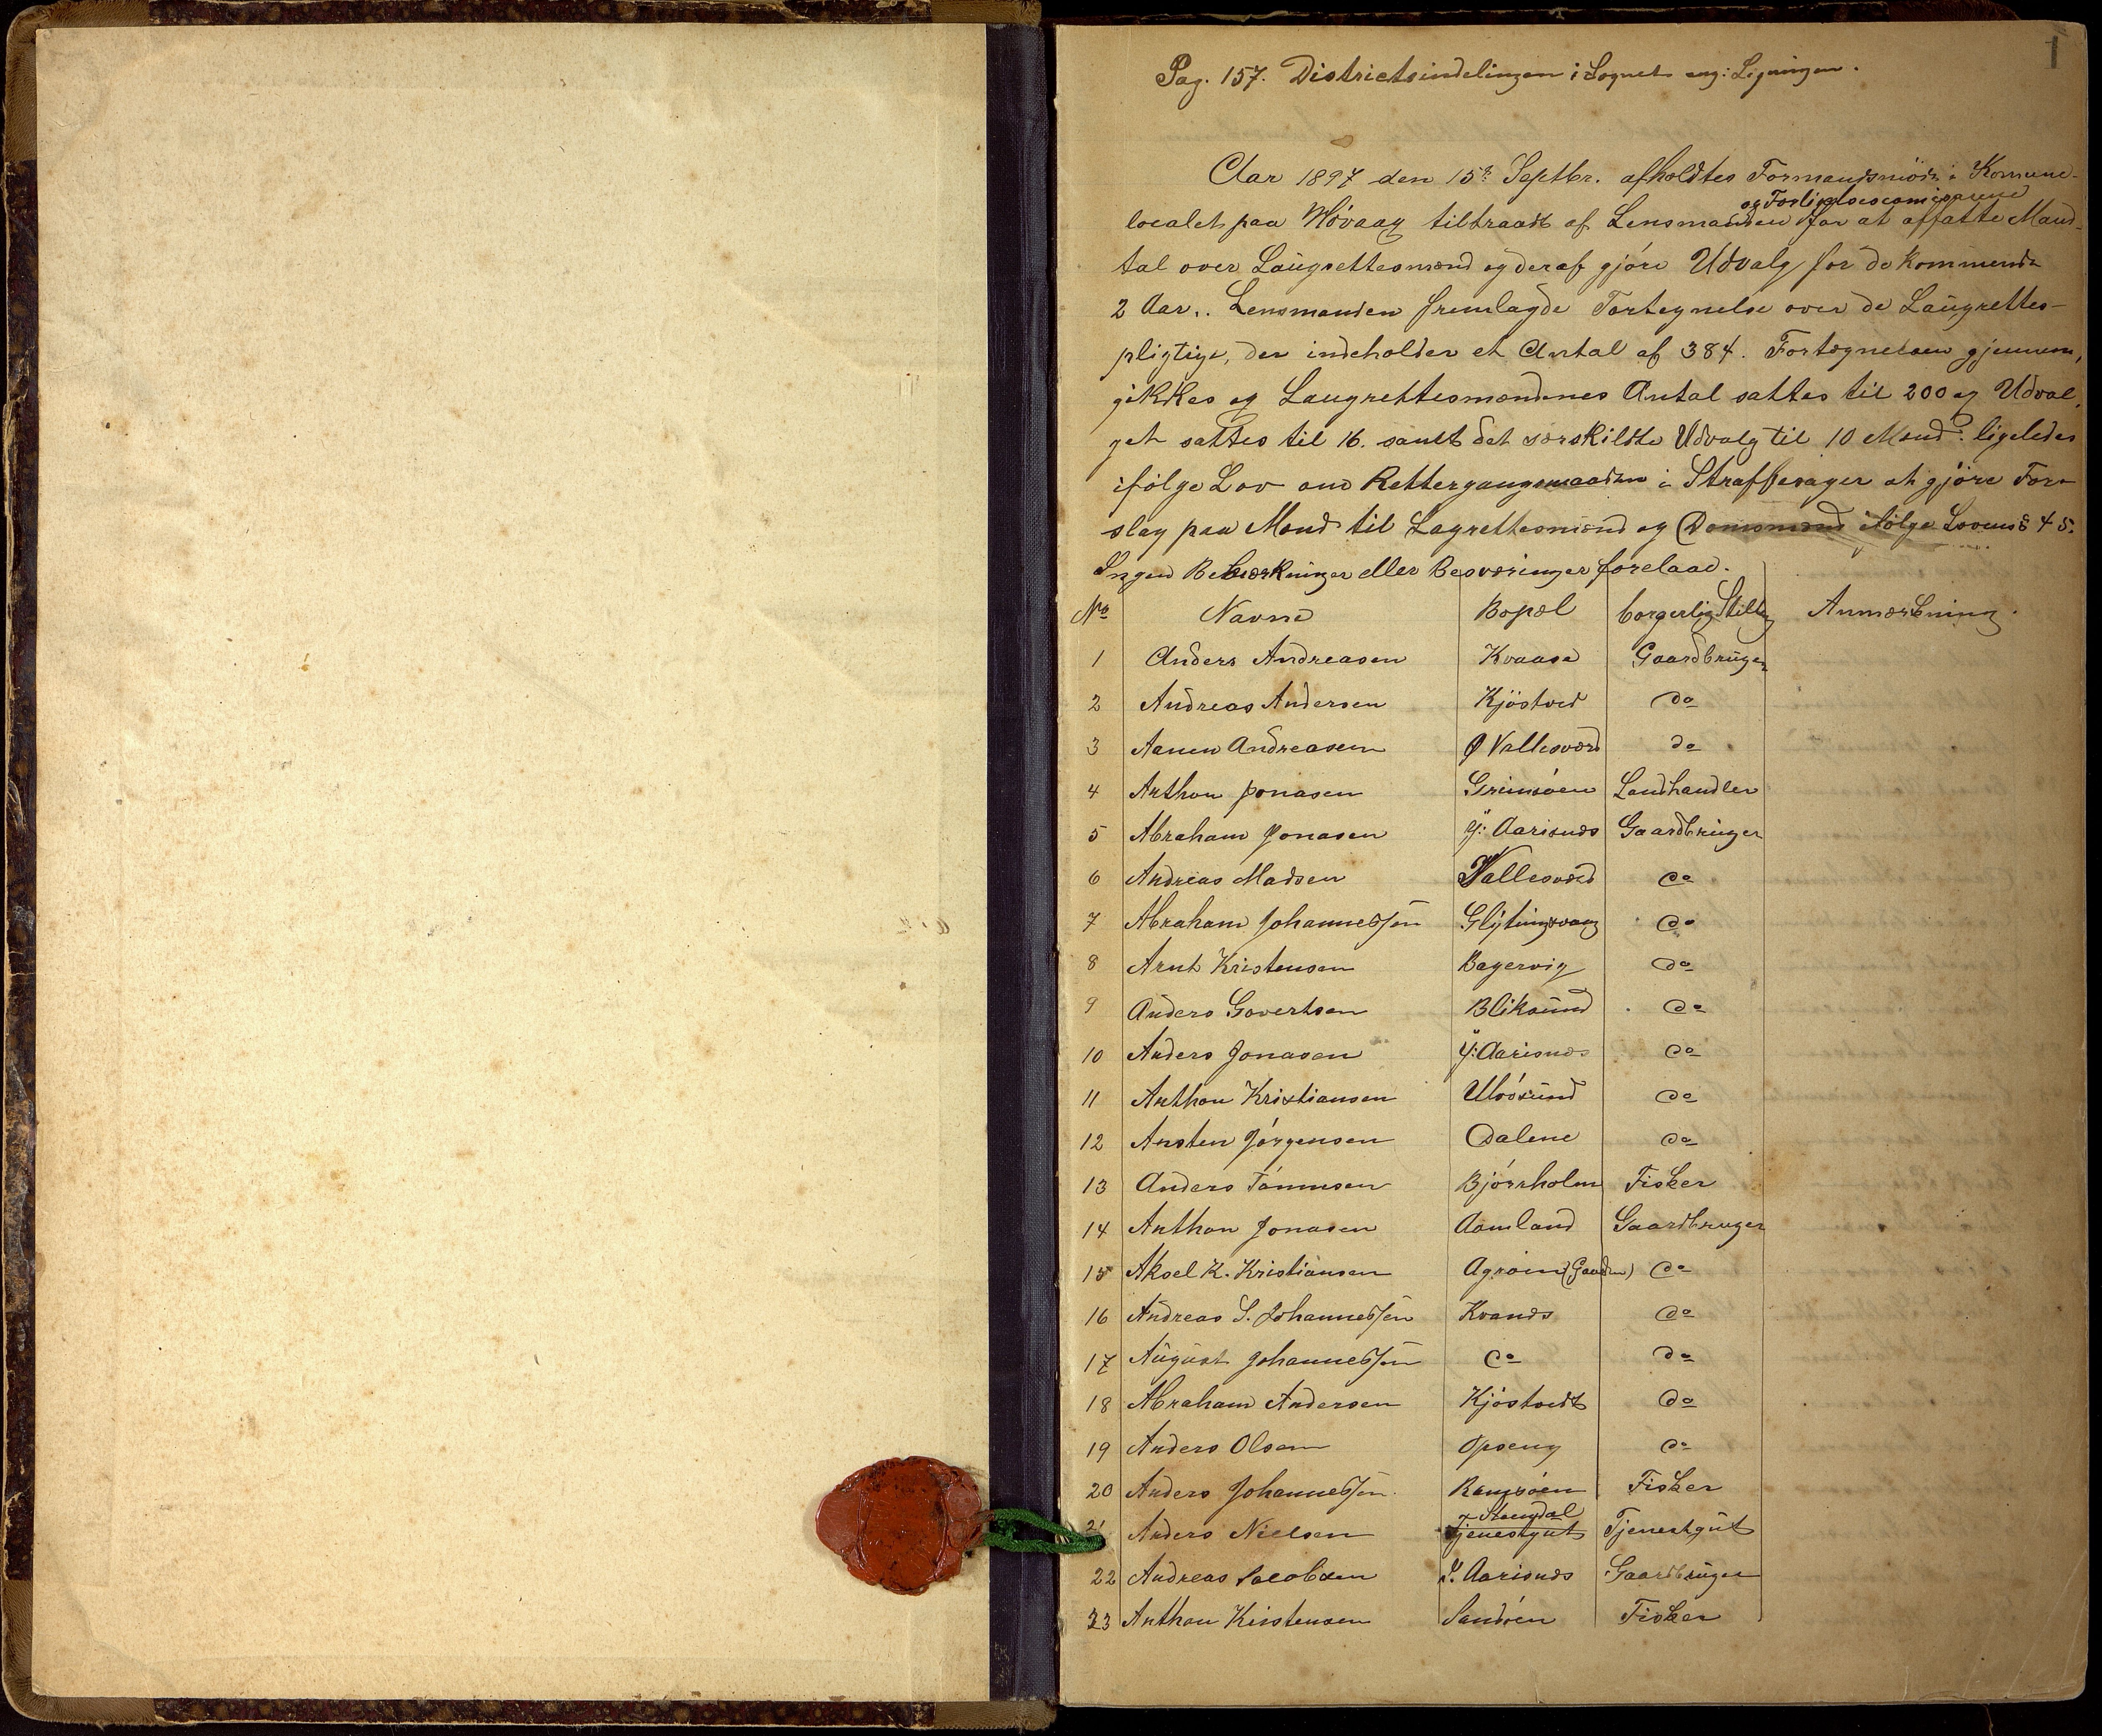 1
Pag. 157. Districtsindelingen i Sognet ang: Ligningen.
Aar 1897 den 15de Septbr. afholdtes Formandsmöde i Komune-
og Forligelsescomisærene
localet paa Hövaag tiltraadt af Lensmanden for at affatte Mand-
tal over Laugrettesmænd og deraf gjöre Udvalg for de kommende
2 Aar.. Lensmanden fremlagde Fortegnelse over de Laugrettes-
pligtige, der indeholder et Antal af 384. Fortegnelsen gjennem,
gikkes og Laugrettesmændenes Antal sattes til 200 og Udval,
get sattes til 16. samt det særskildte Udvalg til 10 Mænd: ligeledes
ifölge Lov om Rettergangsmaaden i Straffesager at gjöre For-
slag paa Mænd til Lagrettesmænd og Domsmænd ifölge Lovens § 45.
Ingen Bemærkninger eller Besværinger forelaae.
No Navne Bopæl borgerlig Stilling Anmærkning.
1 Anders Andreasen Kvaase Gaardbruger
2 Andreas Andersen Kjöstved do
3 Aanen Andreasen Ø Vallesværd do
4 Anthon Jonasen Grimsöen Landhandler
5 Abraham Jonasen Y: Aarisnæs Gaardbruger
6 Andreas Madsen Vallesværd do
7 Abraham Johannessen Glytingsvaag do
8 Arnt Kristensen Bagervig do
9 Anders Govertsen Bliksund do
10 Anders Jonasen Y: Aarisnæs do
11 Anthon Kristiansen Ulvösund do
12 Ansten Jörgensen Dalene do
13 Anders Tönnesen Björnholm Fisker
14 Anthon Jonasen Aamland Gaardbruger
15 Aksel K. Kristiansen Agröen (Gaarden) do
16 Andreas S. Johannessen Kvanæs do
17 August Johannessen do do
18 Abraham Andersen Kjöstvedt do
19 Anders Olsen Opseng do
20 Anders Johannessen Ramsöen Fisker
21 Anders Nielsen Tjenestgut Stendal Tjenestgut
22 Andreas Jacobsen Y. Aarisnæs Gaardbruger
23 Anthon Kristensen Sandöen Fisker